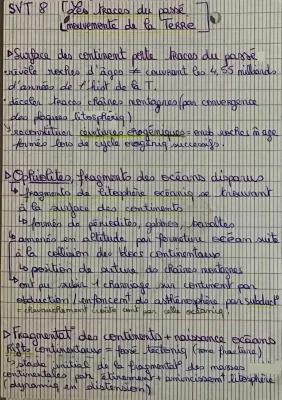 SVT 8 [Les traces du passé
mouvements de la Terre]
▷ Surface des continent porte traces du passé
révèle roches d'âges ≠ couvrant les 4,55 milliards
d'années de l'hist de la T.
· déceler traces chaînes montagnes (par convergence
des plaques litosphériq)
· reconstitution ceintures orogéniques = ens roches m̂ âge
formés lors de cycle orogéniq successifs.
▷ Ophiolites, fragments des océans disparus
↳ fragments de litosphère océaniq se trouvant
à la surface des continents
↳ formés de péridotites, gabbros, basaltes
↳ amenés en altitude par fermeture océan suite
à la collision des blocs continentaux
↳ position de suture des chaînes montagnes
↳ ont pu subir 1 charriage sur continent par
obduction / enfoncent ds asthénosphère par subduct°
= chevauchement
▷ Fragmentat° des continents + naissance océans
Rift continentaux = fossé tectoniq (zone fracture)
↳ stade initial de la fragmentat° des masses
continentales par étirement + amincissement litosphère
(dynamiq en distension)